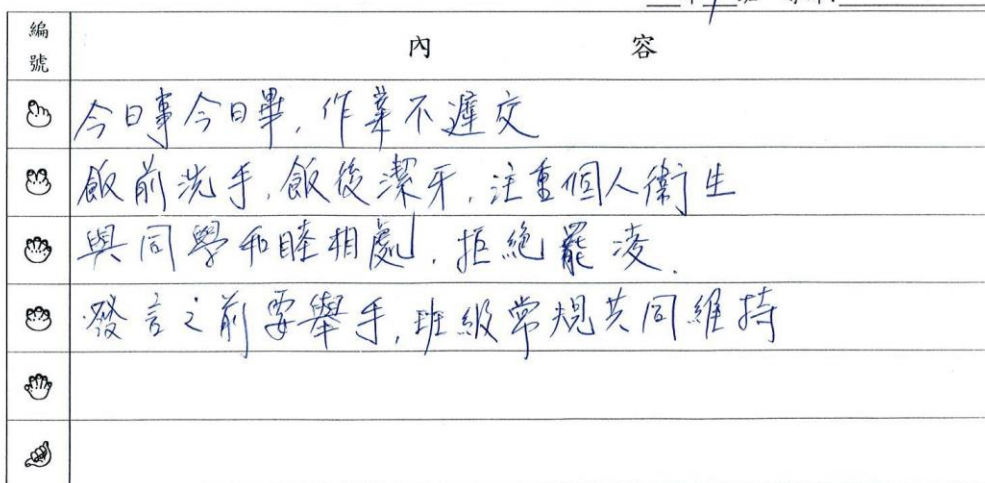 編號 內容
今日事今日畢,作業不遲交
飯前洗手,飯後潔牙,注重個人衛生
與同學和睦相處,拒絕罷凌.
發言之前要舉手,班級常規共同維持